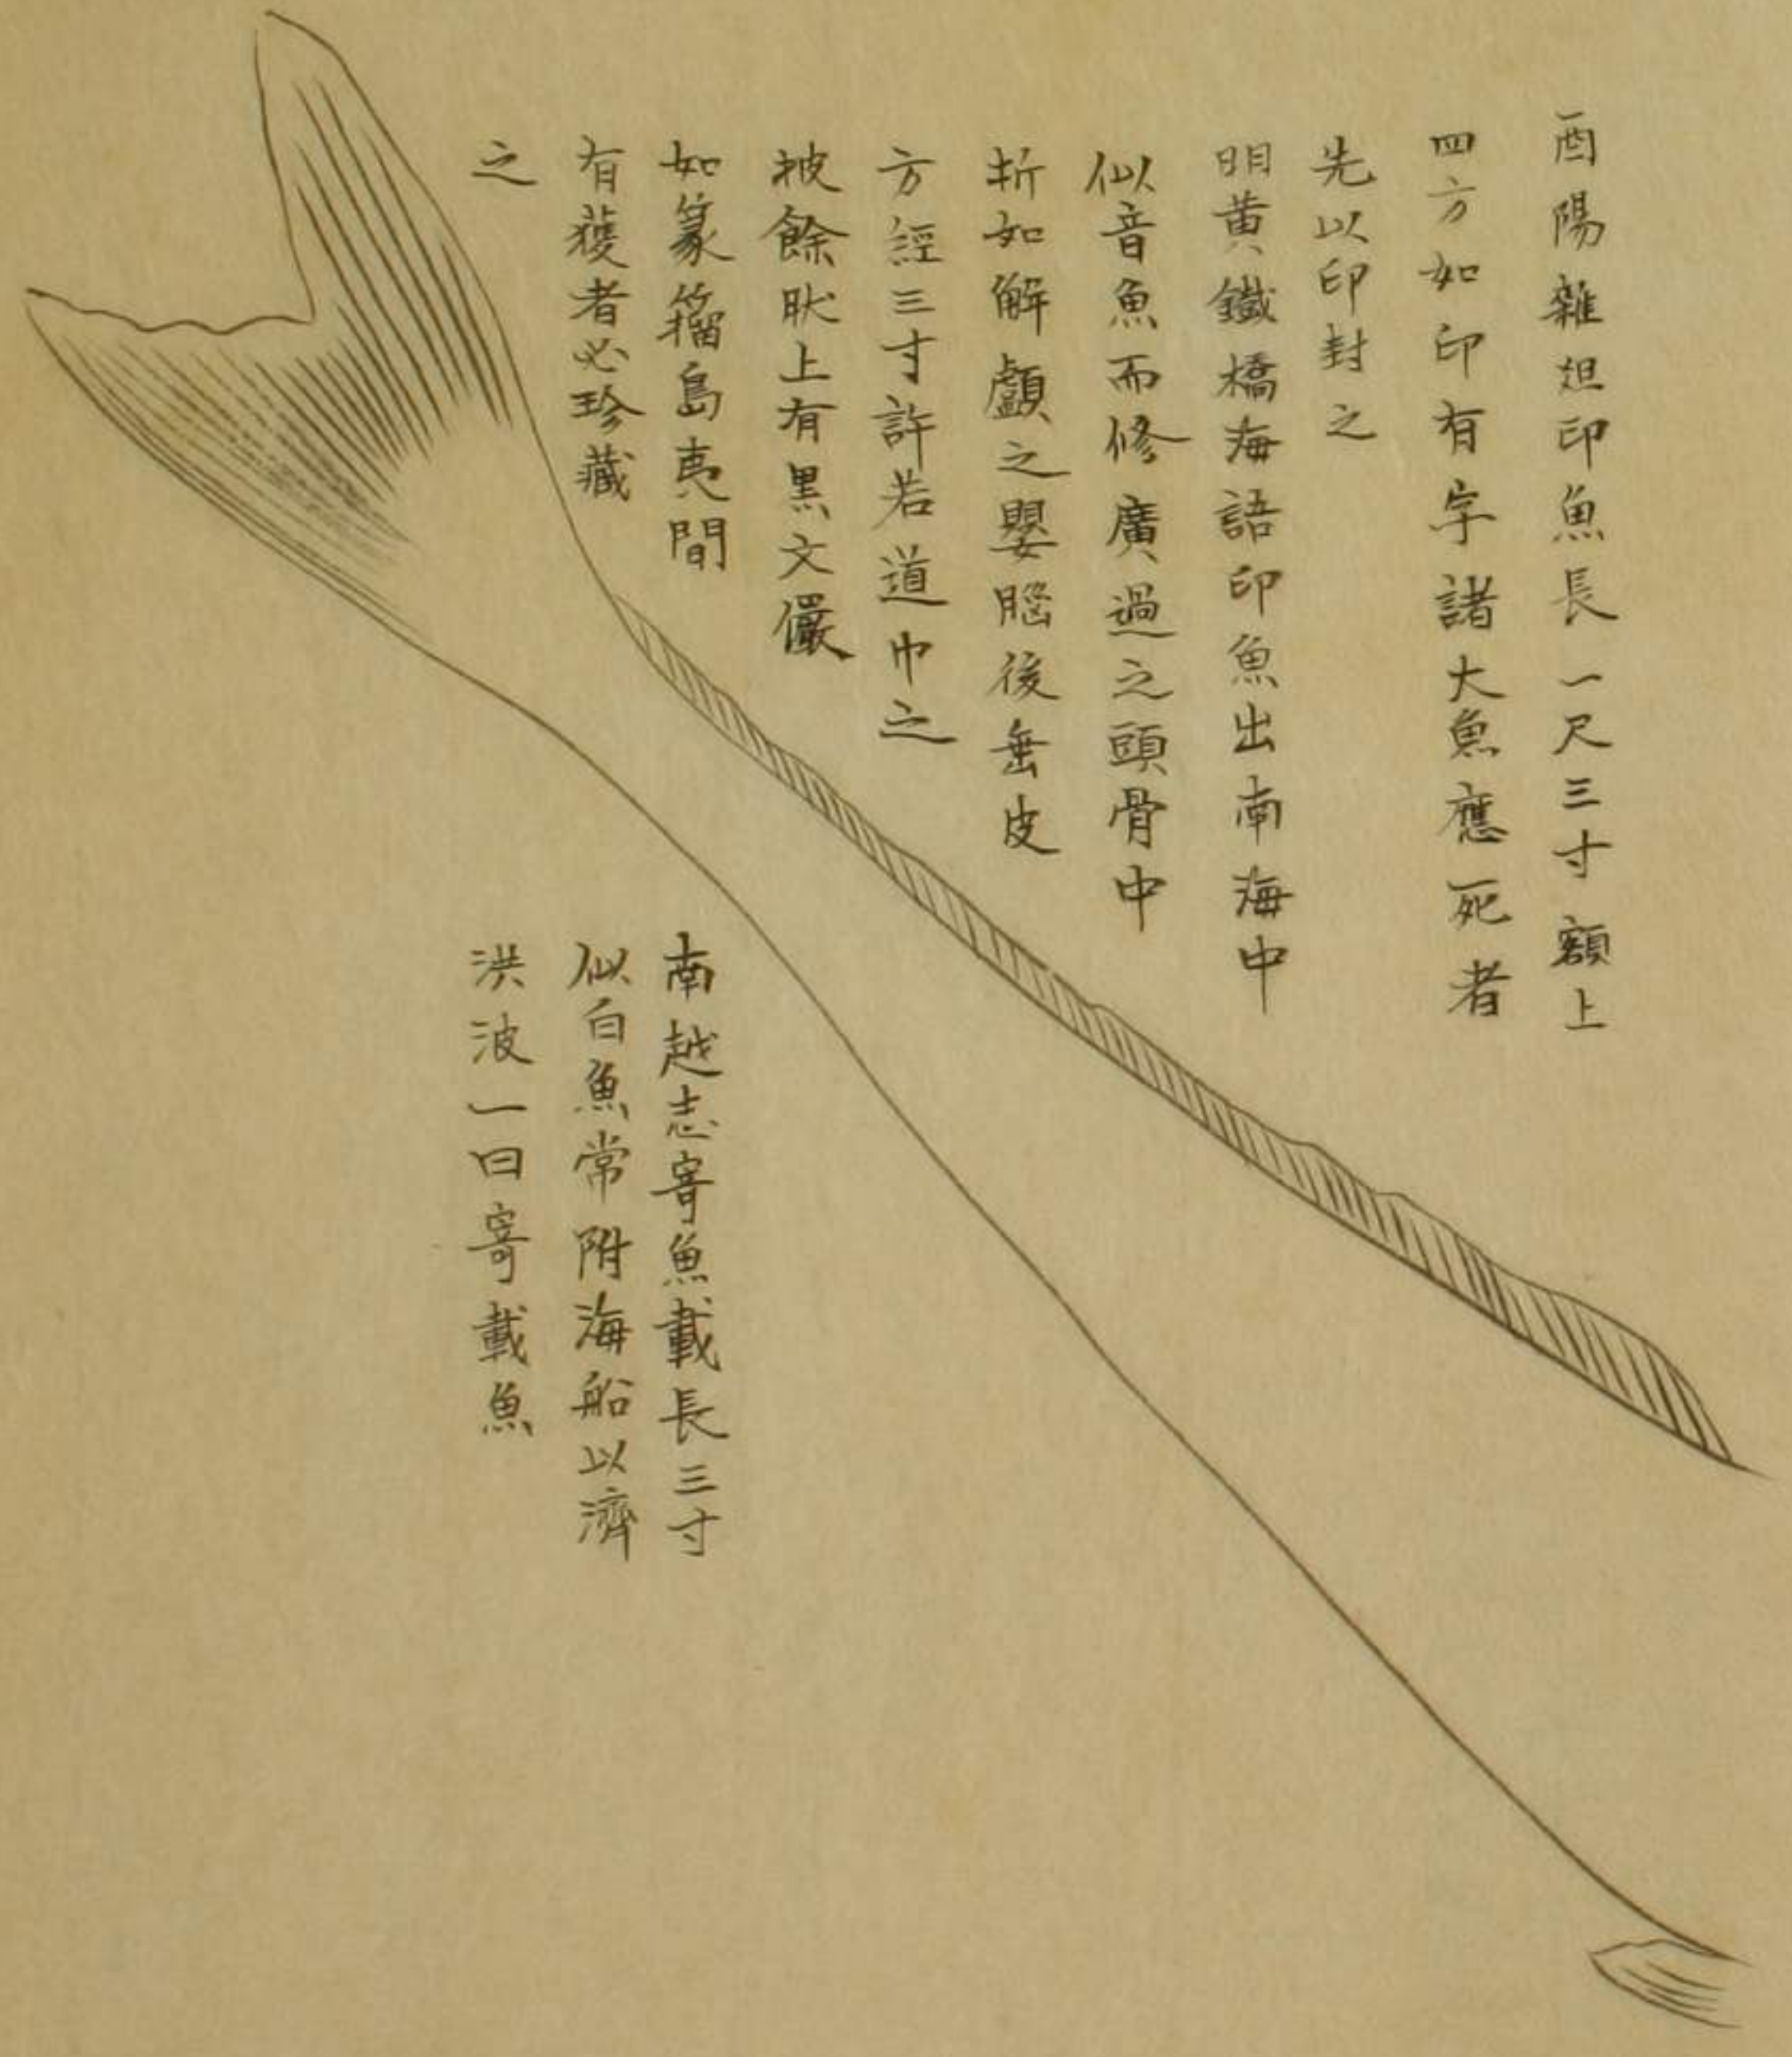 酉陽雜俎印魚長一尺三寸額上
四方如印有字諸大魚應死者
先以印封之
明黄鐵橋海語印魚出南海中
似音魚而修廣過之頭骨中
折如解顱之嬰腦後垂皮
方經三寸許若道巾之
披餘肰上有黒文儼
如篆籀島夷間
有獲者必珍藏
之
南越志寄魚載長三寸
似白魚常附海船以濟
洪波一曰寄載魚